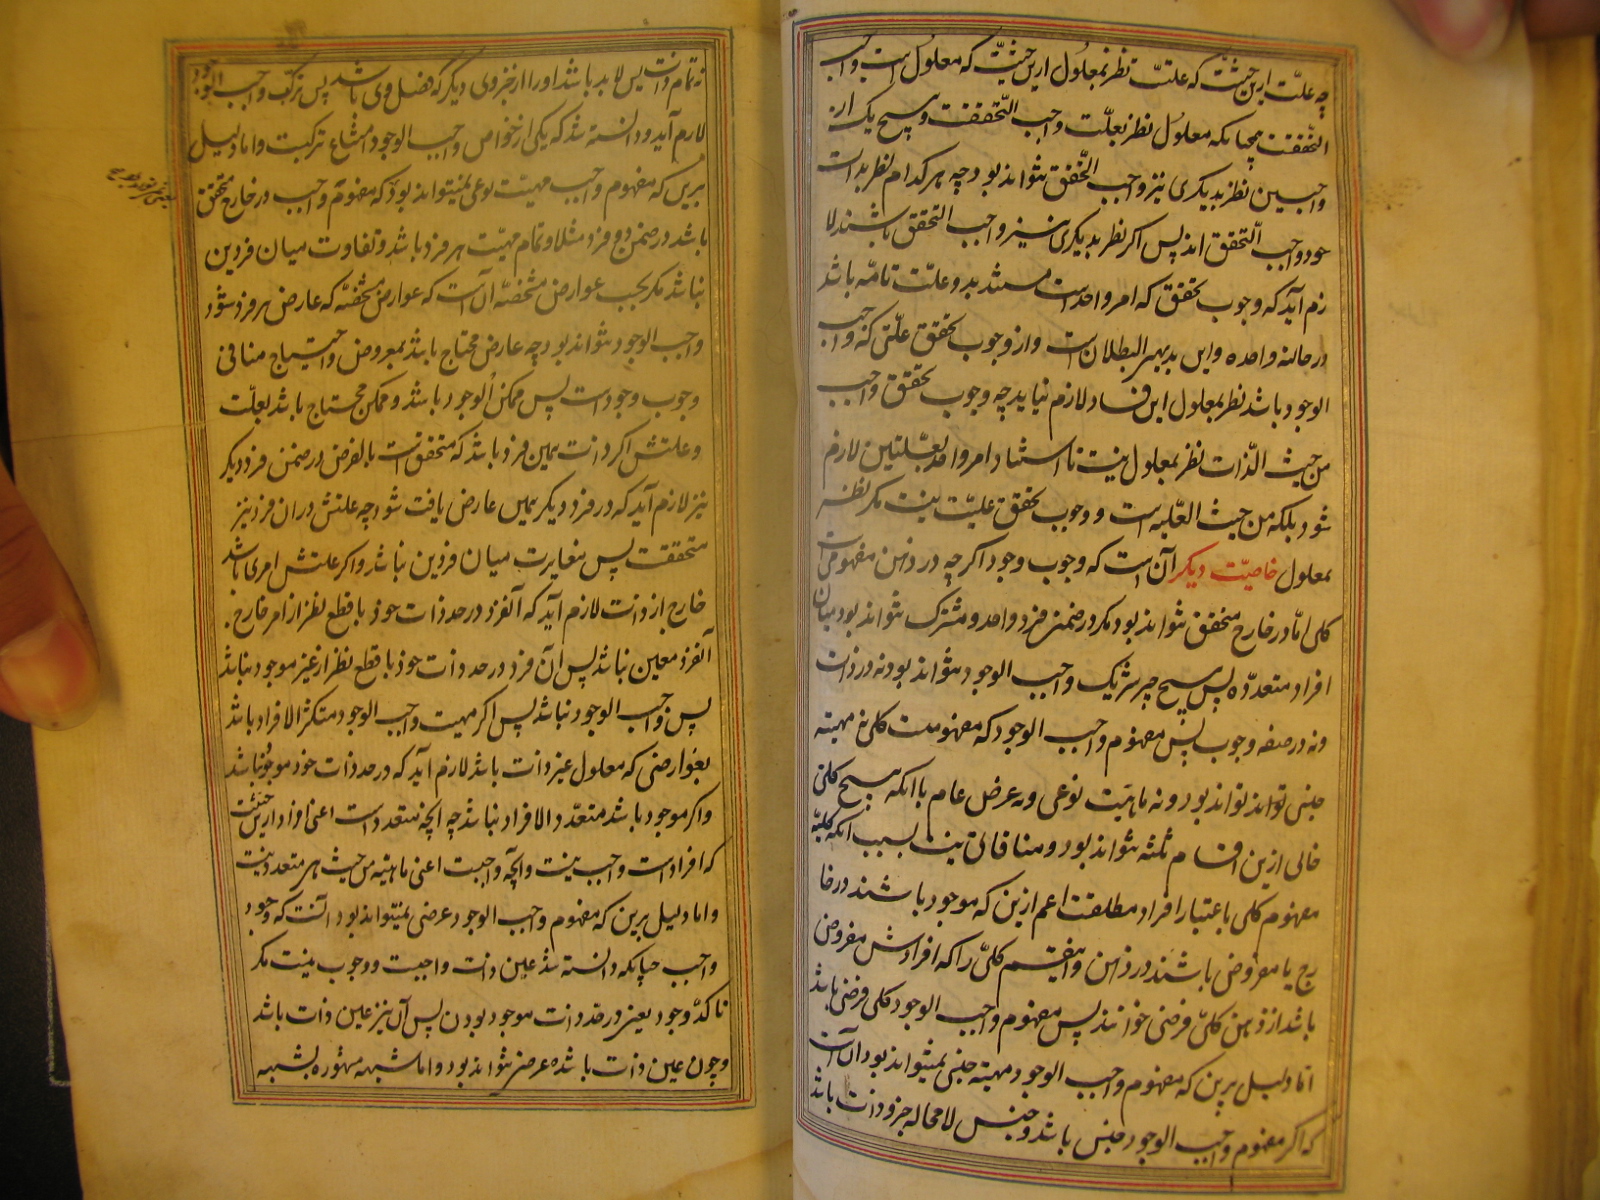 چه علّت ازین حیثیّت که علتست نظر بمعلول ازین حیثیّت که معلول است واجب
التحققست همچنانکه معلول نظر بعلّت واجب التحققست و هیچ یک از
واجبین نظر بدیگری نیز واجب التحقق نتواند بود چه هر کدام نظر بذات
خود واجب التحقق اند پس اگر نظر بدیگری نیز واجب التحقق باشند لا
زم آید که وجوب تحقق که امر واحد است مستند بدو علّت تامّه باشد
در حالت واحده و این بدیهی البطلان است و از وجوب تحقق علّتی که واجب
الوجود باشد نظر بمعلول این فساد لازم نیاید چه وجوب تحقق واجب
من حیث الذّات نظر بمعلول نیست تا استناد امر واحد بعلّتین لازم
شود بلکه من حیث العلّیه است و وجوب تحقق علیّت نیست مگر نظر
بمعلول خاصیّت دیگر آن است که وجوب وجود اگر چه در ذهن مفهومی است
کلی امّا در خارج متحقق نتواند بود مگر در ضمن فرد واحد و مشترک نتواند بود میان
افراد متعدّده پس هیچ چیز شریک واجب الوجود نتواند بود نه در ذات
و نه در صفه وجوب پس مفهوم واجب الوجود که مفهومیست کلی نه مهیته
جنسی تواند بود و نه ماهیّت نوعی و نه عرض عام با آنکه هیچ کلی
خالی ازین اقسام ثلثه نتواند بود و منافاتی نیست بسبب آنکه کلیّه
مفهوم کلی باعتبار افراد مطلقست اعم ازین که موجود باشند در خا
رج یا مفروض باشند در ذهن و این قسم کلیّ را که افرادش مفروض
باشد از ذهن کلیّ فرضی خوانند پس مفهوم واجب الوجود کلی فرضی باشد
امّا دلیل برین که مفهوم واجب الوجود مهیته جنسی نمیتواند بود آن است
که اگر مفهوم واجب الوجود جنس باشد و جنس لا محاله جزو ذات باشد
نه تمام ذات پس لابد باشد او را از جزوی دیگر که فصل وی باشد پس ترکب واجب الوجود
لازم آید و دانسته شد که یکی از خواص واجب الوجود امتناع ترکبست و اما دلیل
برین که مفهوم واجب مهیّت نوعی نمیتواند بود که مفهوم واجب در خارج متحقق
باشد در ضمن دو فرد مثلا و تمام مهیّت هر فرد باشد و تفاوت میان فردین
نباشد مگر بحسب عوارض مشخصه آن است که عوارض مشخصه که عارض هر فرد شود
واجب الوجود نتواند بود چه عارض محتاج باشد بمعروض و احتیاج منافی
وجوب وجود است پس ممکن الوجود باشد و ممکن محتاج باشد بعلّت
و علتش اگر ذات همین فرد باشد که متحقق است بالفرض در ضمن فرد دیگر
نیز لازم آید که در فرد دیگر همین عارض یافت شود چه علتش در ان فرد نیز
متحققست پس مغایرت میان فردین نباشد و اگر علتش امری باشد
خارج از ذات لازم آید که آنفرد در حد ذات خود با قطع نظر از امر خارج
آنفرد معین نباشد پس آن فرد در حد ذات خود با قطع نظر از غیر موجود نباشد
پس واجب الوجود نباشد پس اگر مهیت واجب الوجود متکثر الافراد باشد
بعوارضی که معلول غیر ذات باشد لازم آید که در حد ذات خود موجود نباشد
و اگر موجود باشد متعدّد الافراد نباشد چه آنچه متعدد است اعنی افراد ازین حیثیت
که افراد است واجب نیست و آنچه واجبست اعنی ماهیته من حیث هی متعدد نیست
و اما دلیل برین که مفهوم واجب الوجود عرضی نمیتواند بود آنست که وجود
واجب چنانکه دانسته شد عین ذات واجبست و وجوب نیست مگر
تاکد وجود یعنی در حد ذات موجود بودن پس آن نیز عین ذات باشد
و چون عین ذات باشد عرضی نتواند بود و اما شبهه مشهوره بشبهه